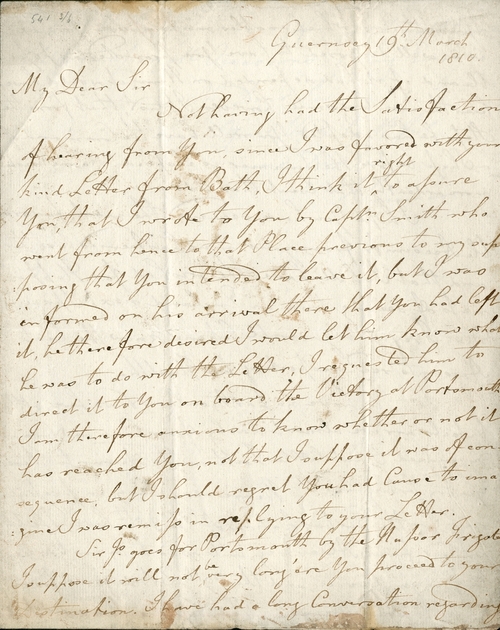 541 3/6
Guernsey 19th March
1810.
My Dear Sir
Not having had the Satisfaction
of hearing from You, since I was favored with your
right
kind Letter from Bath, I think it ^ to assure
You, that I wrote to You by Captn Smith who
went from hence to that Place previous to my sup
:posing that You intended to leave it, but I was
informed on his arrival there that You had left
it, he therefore desired I would let him know what
he was to do with the Letter, I requested him to
direct it to You on board the Victory at Portsmouth
I am therefore anxious to know whether or not it
has reached You, not that I suppose it was of con
sequence, but I should regret You had Cause to ima
:gine I was remiss in replying to your Letter.
Sir Jas goes for Portsmouth by the Frigate
I suppose it will not be very long 'ere You proceed to your
destination. I have had a long Conversation regarding